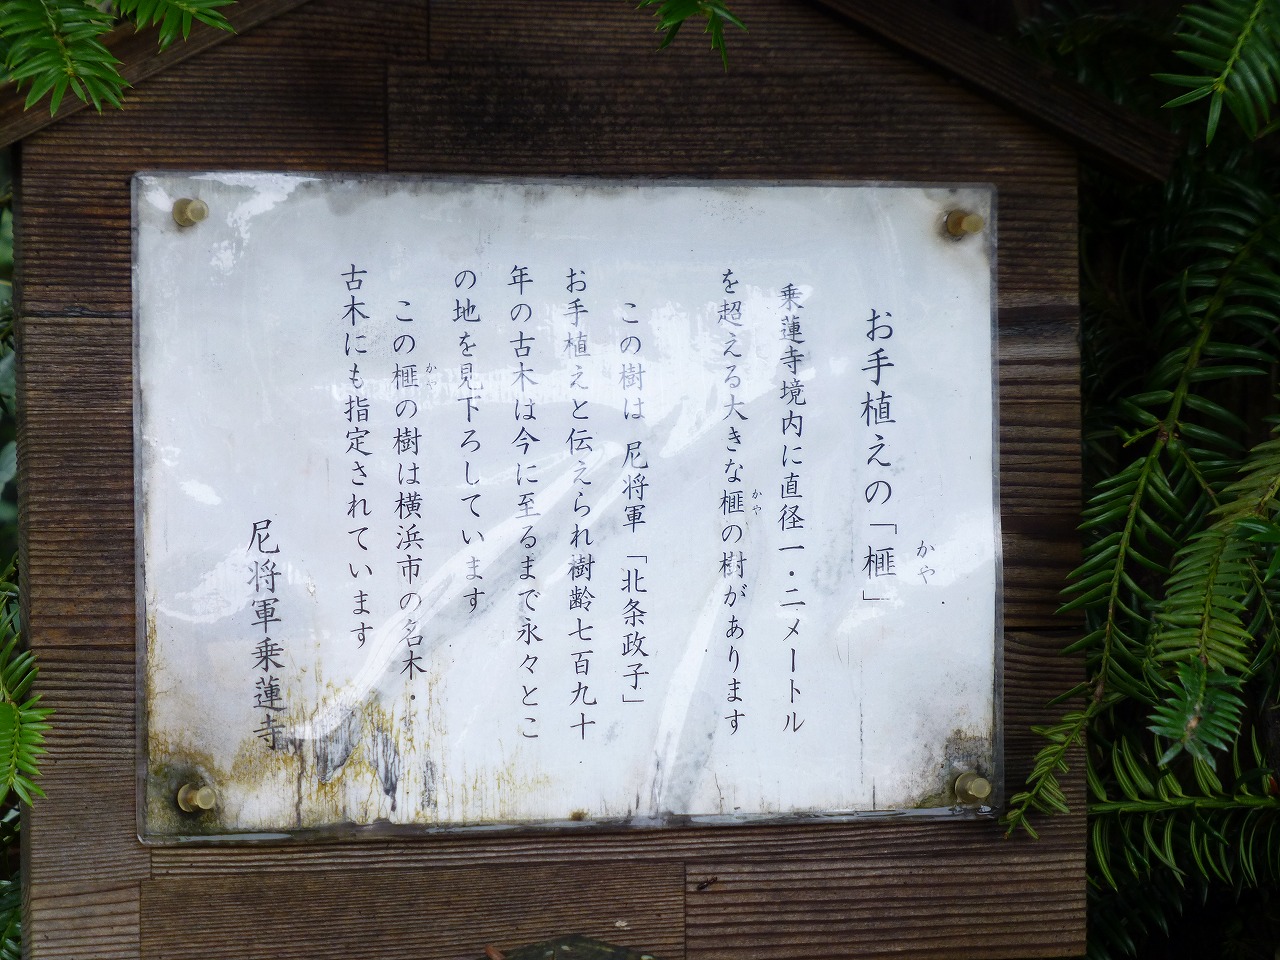 お手植えの「榧」
かや
乗蓮寺境内に直径一・二メートル
を超える大きな榧の樹があります
かや
この樹は 尼将軍「北条政子」
お手植えと伝えられ樹齢七百九十
年の古木は今に至るまで永々とこ
の地を見下ろしています
この榧の樹は横浜市の名木・
かや
古木にも指定されています
尼将軍乗蓮寺